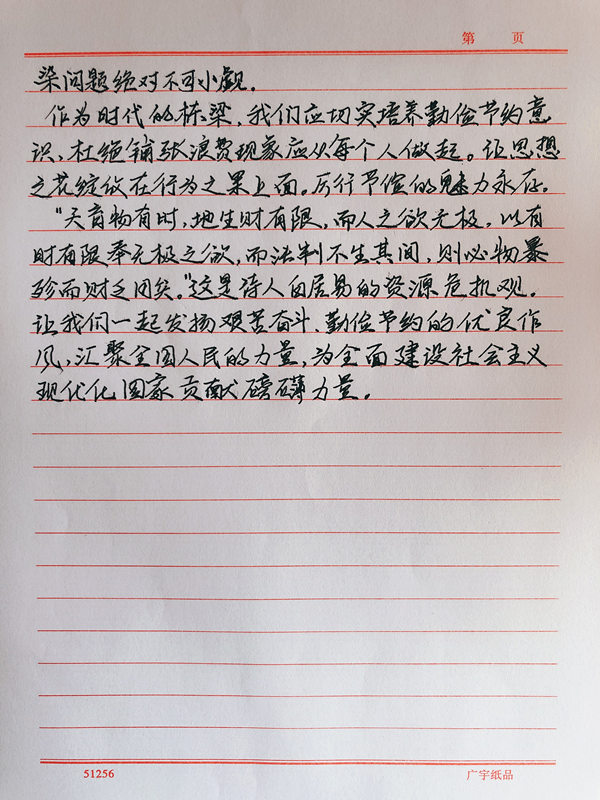 第 页
染问题绝对不可小觑。
作为时代的栋梁，我们应切实培养勤俭节约意
识，杜绝铺张浪费现象应从每个人做起。让思想
之花绽放在行为之果上面。厉行节俭的魅力永存。
“天育物有时，地生财有限，而人之欲无极。以有
时有限奉无极之欲，而法制不生其间，则必物暴
殄而财乏用矣。”这是诗人白居易的资源危机观。
让我们一起发扬艰苦奋斗、勤俭节约的优良作
风，汇聚全国人民的力量，为全面建设社会主义
现代化国家贡献磅礴力量。
51256 广宇纸品